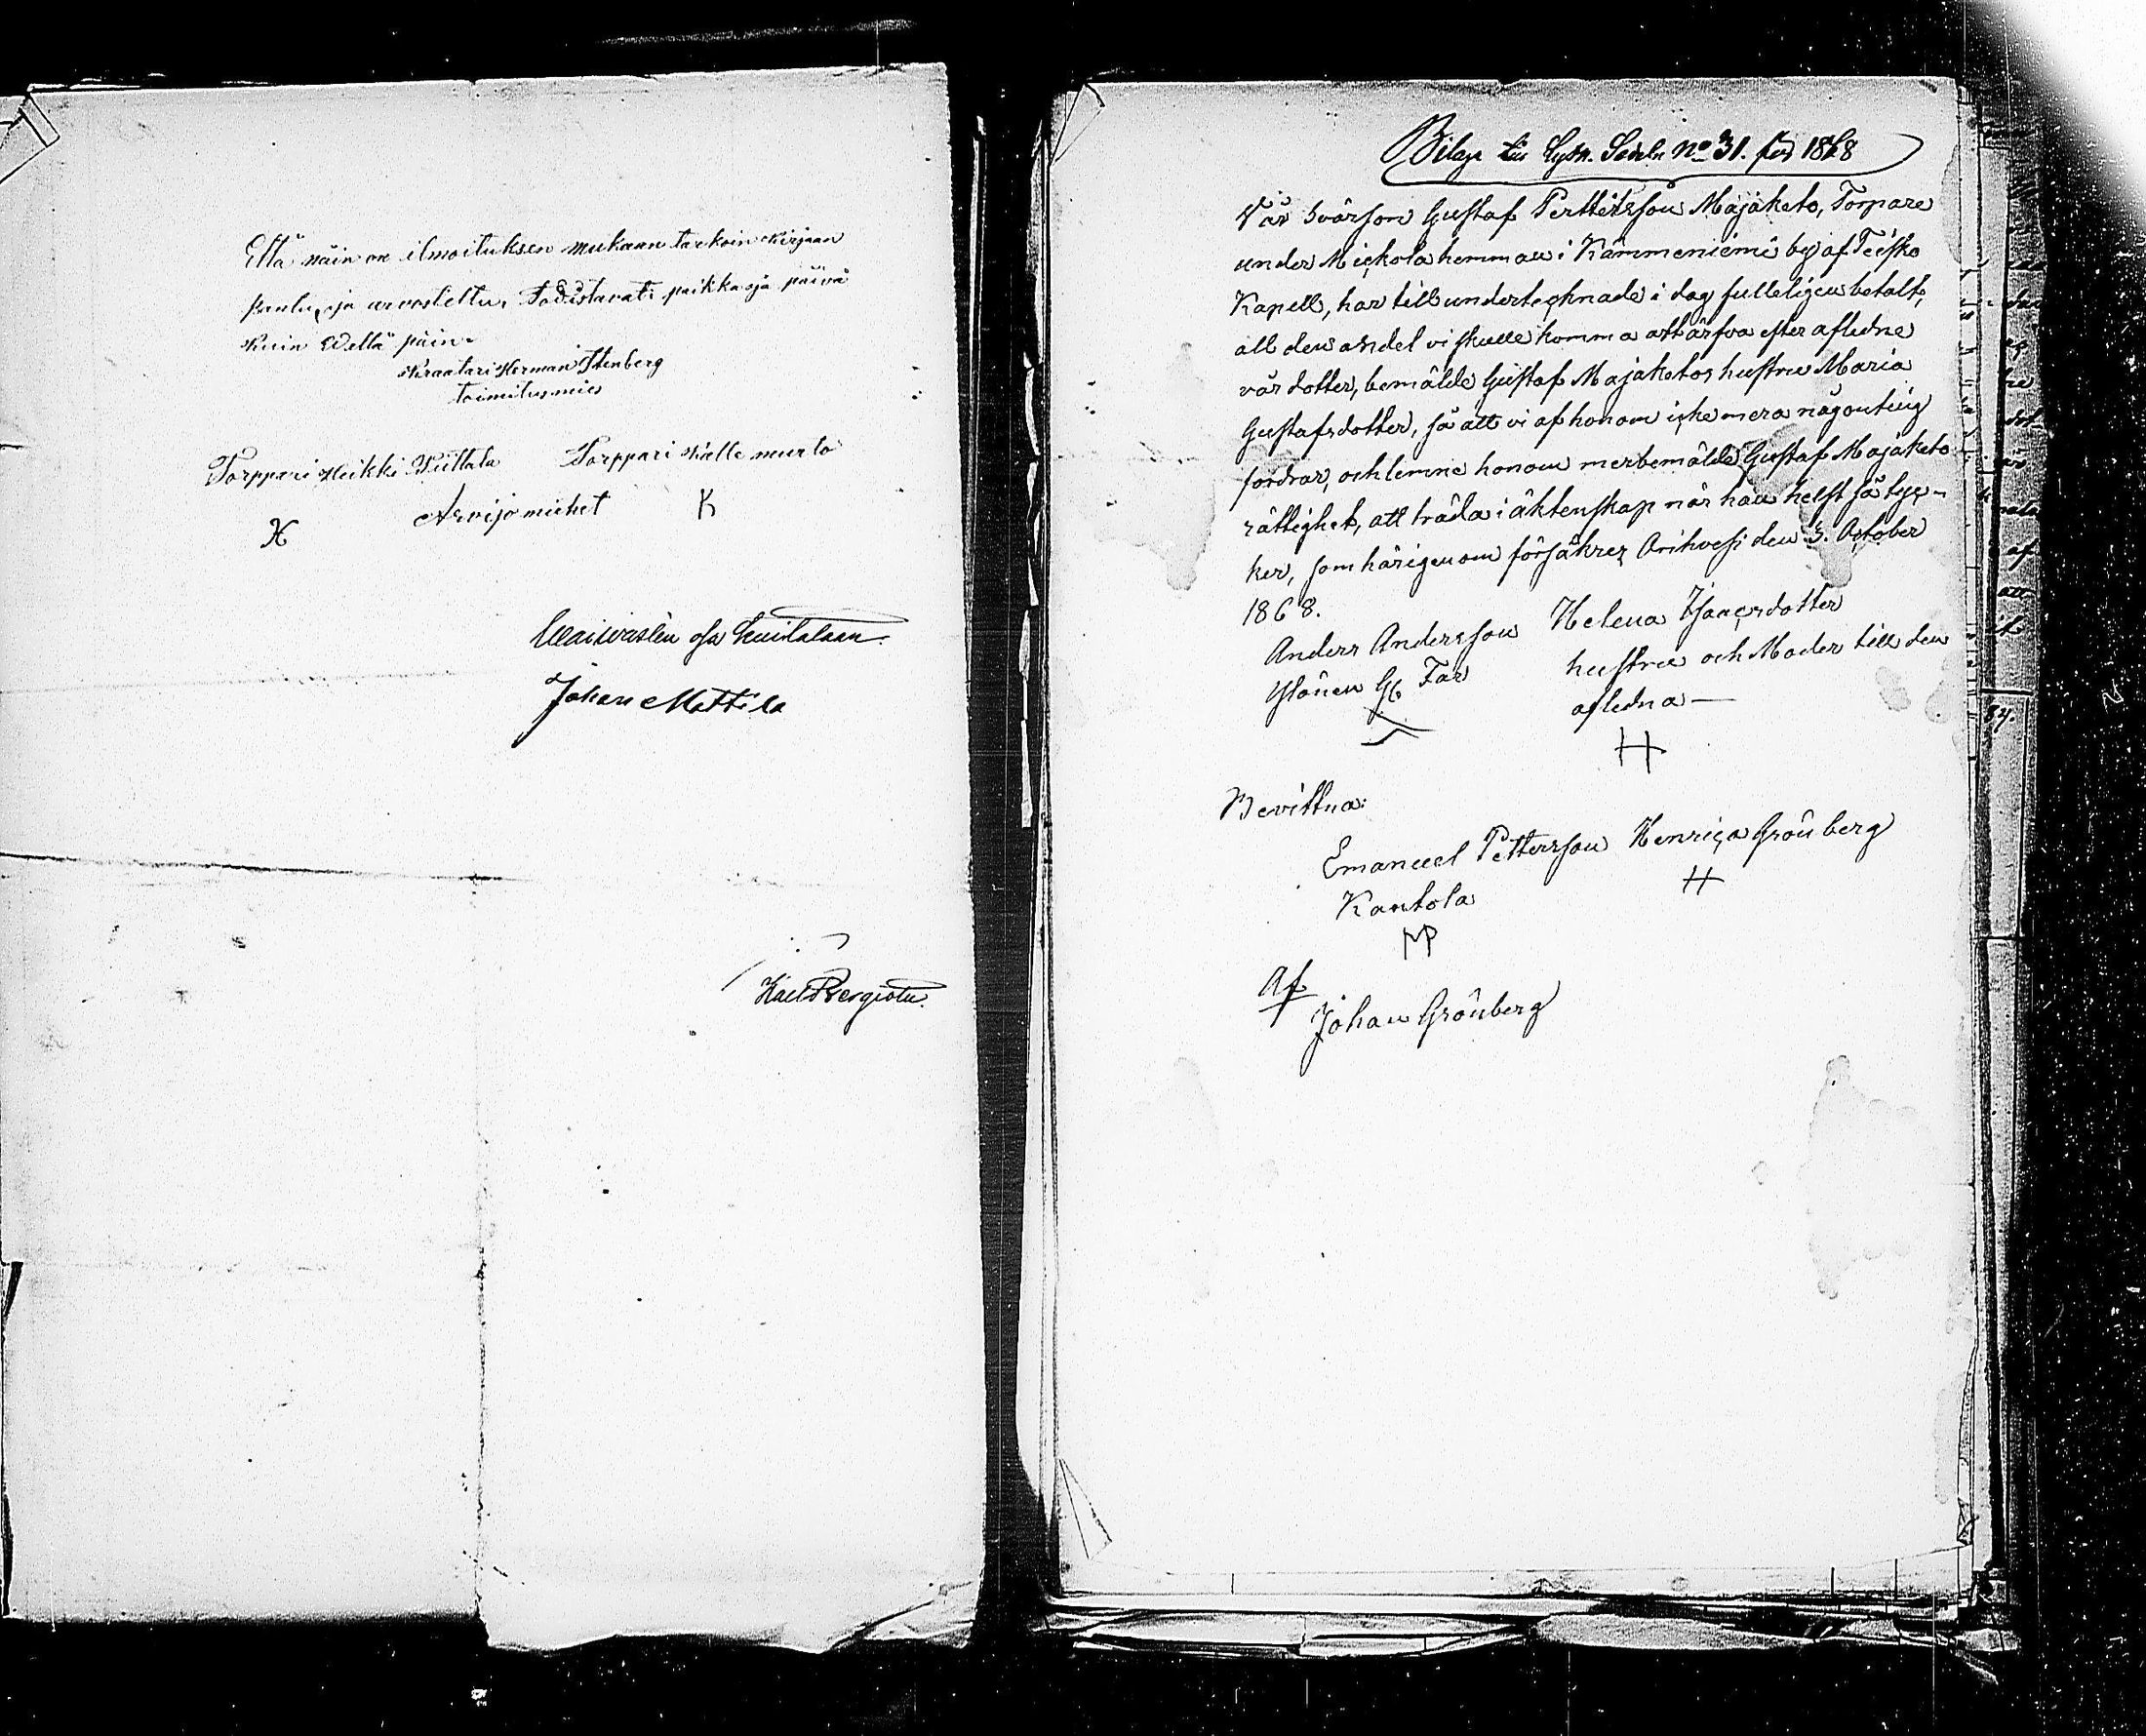 Että näin on ilmoituksen mukaan tarkoin kirjaan
pantu, ja arvosteltu, Todistavat: paikka ja päivä
kuin Wellä päin.
Kraatari Herman Stenberg
toimitusmies
Torppari Heikki Wiittala Torppari Kalle murto
Arvijo miehet
K
Waiwasten osa kuitataan.
Johan Mattila
Bilaga till Lysn. Sedeln No 31. för 1868
Vår svårson Gustaf Perttilsson Majaketo, Torpare
under Mickola hemman i Kämmeniemi by af Teisko
Kapell, har till undertecknade i dag fulleligen betalt,
all den andel vi skulle komma att ärfva efter afledne
vår dotter, bemälde Gustaf Majaketos hustru Maria
Gustafsdotter, så att vi af honom icke mera någonting
fordrar, och lemne honom merbemälde Gustaf Majaketo
rättighet, att träda i äktenskap när han helst så tyc-
ker, som härigenom försäkres Orihvesi den 3. October
1868.
Anders Andersson Helena Isacsdotter
Ylönen Far hustru och Moder till den
afledna —
H
Bevittna:
Emanuel Pettersson Henrica Grönberg
Kantola H
MP
Af
Johan Grönberg